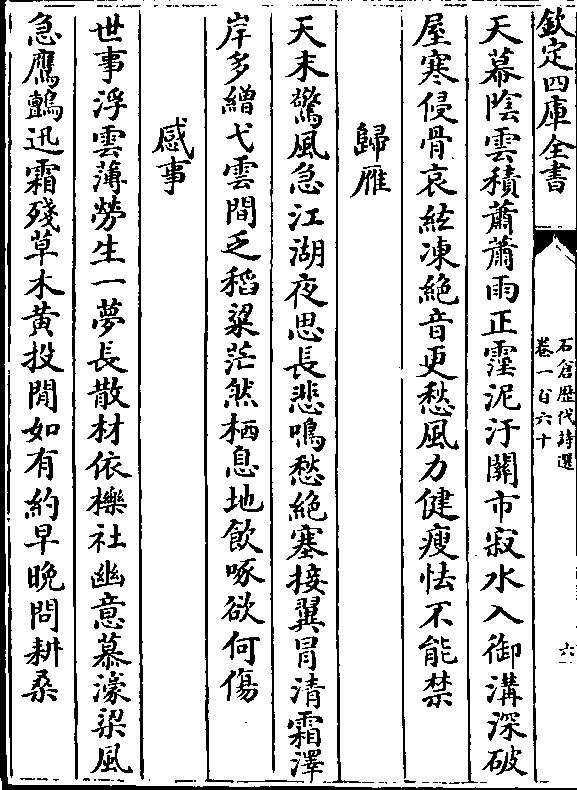 欽定四庫全書
石倉歴代詩選
卷一百六十
六
天幕陰雲積蕭蕭雨正霪泥汙闗市寂水入御溝深破
屋寒侵骨哀絃凍絶音更愁風力健瘦怯不能禁
歸雁
天末驚風急江湖夜思長悲鳴愁絶塞接翼冐清霜澤
岸多繒弋雲間乏稻粱茫然栖息地飲啄欲何傷
感事
世事浮雲薄勞生一夢長散材依櫟社幽意慕濠梁風
急鷹鸇迅霜殘草木黄投閒如有約早晚問耕桑